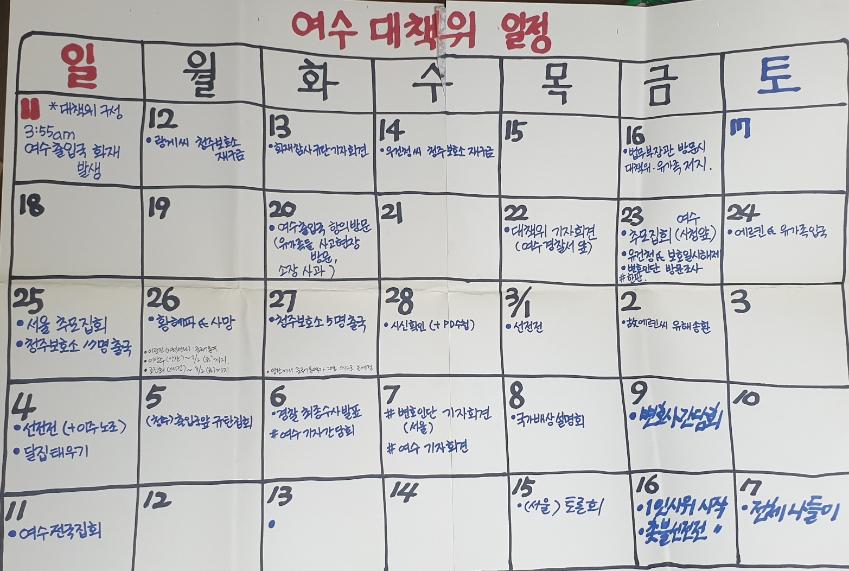 여수 대책위 일정
일 월 화 수 목 금 토
11 *대책위 구성
3:55am
여수출입국 화재
발생
12
청주보호소
재구금
13
•화재참사규탄기자회견
14
청주보호소 재구금
15
16
•법무부장관 방문시
대책위·유가족 저지.
17
18
19
20
•여수출입국 항의방문
(유가족들 사고현장
방문,
소장 사과)
21
22
•대책위 기자회견
(여수경찰서 앞)
23 여수
•추모집회(시청앞)
보호일시해제
•변호인단 방문조사
24
유가족 입국
25
•서울 추모집회
•청주보호소 17명 출국
26
사망
27
•청주보호소 5명 출국
28
•시신확인(+PD수첩)
3/1
•선전전
2
유해송환
3
4
•선전전
•달집태우기
5
출입국앞 규탄집회
6
•경찰 최종수사발표
#여수 기자간담회
7
#변호인단 기자회견
(서울)
#여수 기자회견
8
•국가배상설명회
9
•변호사간담회
10
11
•여수전국집회
12
13
•
14
15
•(서울)토론회
16
•1인시위 시작
•촛불선전전 〃
17
•전체 나들이